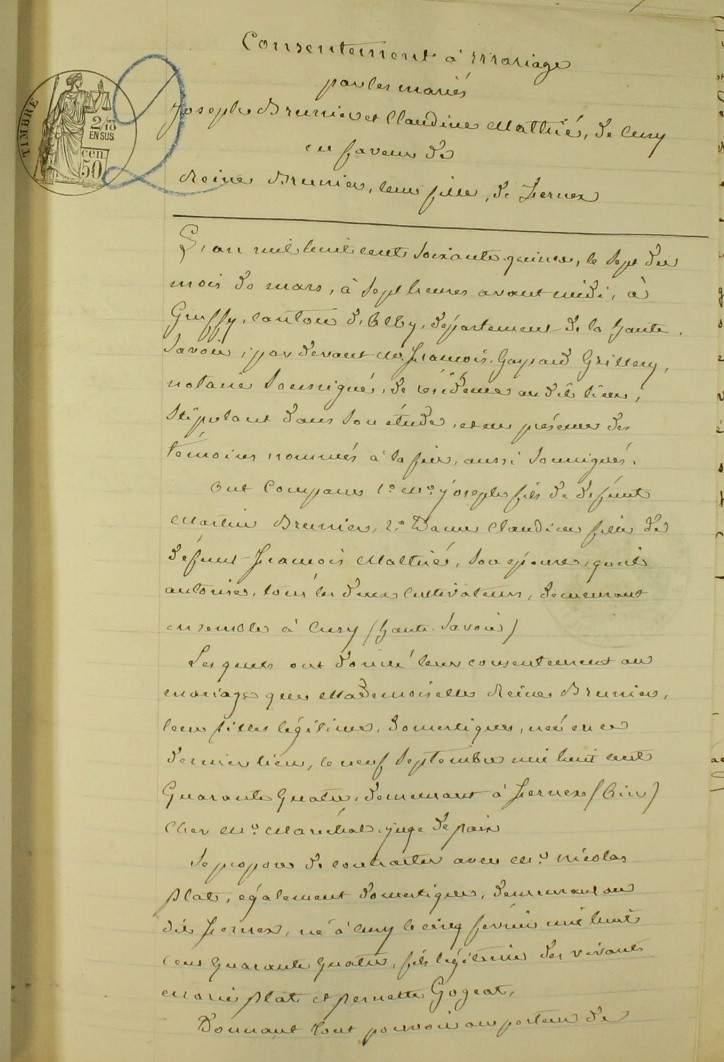 Consentement à Mariage
par les mariés
Joseph Brunier et Claudine Mathié, de Cusy
en faveur de
Reine Brunier, leur fille, de Fernex
TIMBRE
2/10
EN SUS
50 cen
2
L'an mil huit cent soixante quinze, le sept du
mois de mars, à sept heures avant midi, à
Gruffy, canton d'Alby, département de la Haute
Savoie, par devant me François Gaspard Grillery,
notaire soussigné, de résidence au dit lieu,
stipulant dans son étude, et en présence des
témoins nommés à la fin, aussi soussignés.
Ont comparu 1o Mr Joseph fils de défunt
Martin Brunier, 2o Dame Claudine fille de
défunt François Mathié, son épouse, qu'il
autorise, tous les deux cultivateurs, demeurant
ensemble à Cusy (Haute Savoie)
Les quels ont donné leur consentement au
mariage que Mademoiselle Reine Brunier,
leur fille légitime, domestique, née en ce
dernier lieu, le neuf septembre mil huit cent
quarante quatre, demeurant à Fernex (Ain)
chez Mr Maréchal, juge de paix
Se propose de contracter avec Mr Nicolas
Plat, également domestique, demeurant au
dit Fernex, né à Cusy le cinq février mil huit
cent quarante quatre, fils légitime des vivants
Marie Plat et Pernette Gogeat,
Donnant tout pouvoir au porteur de